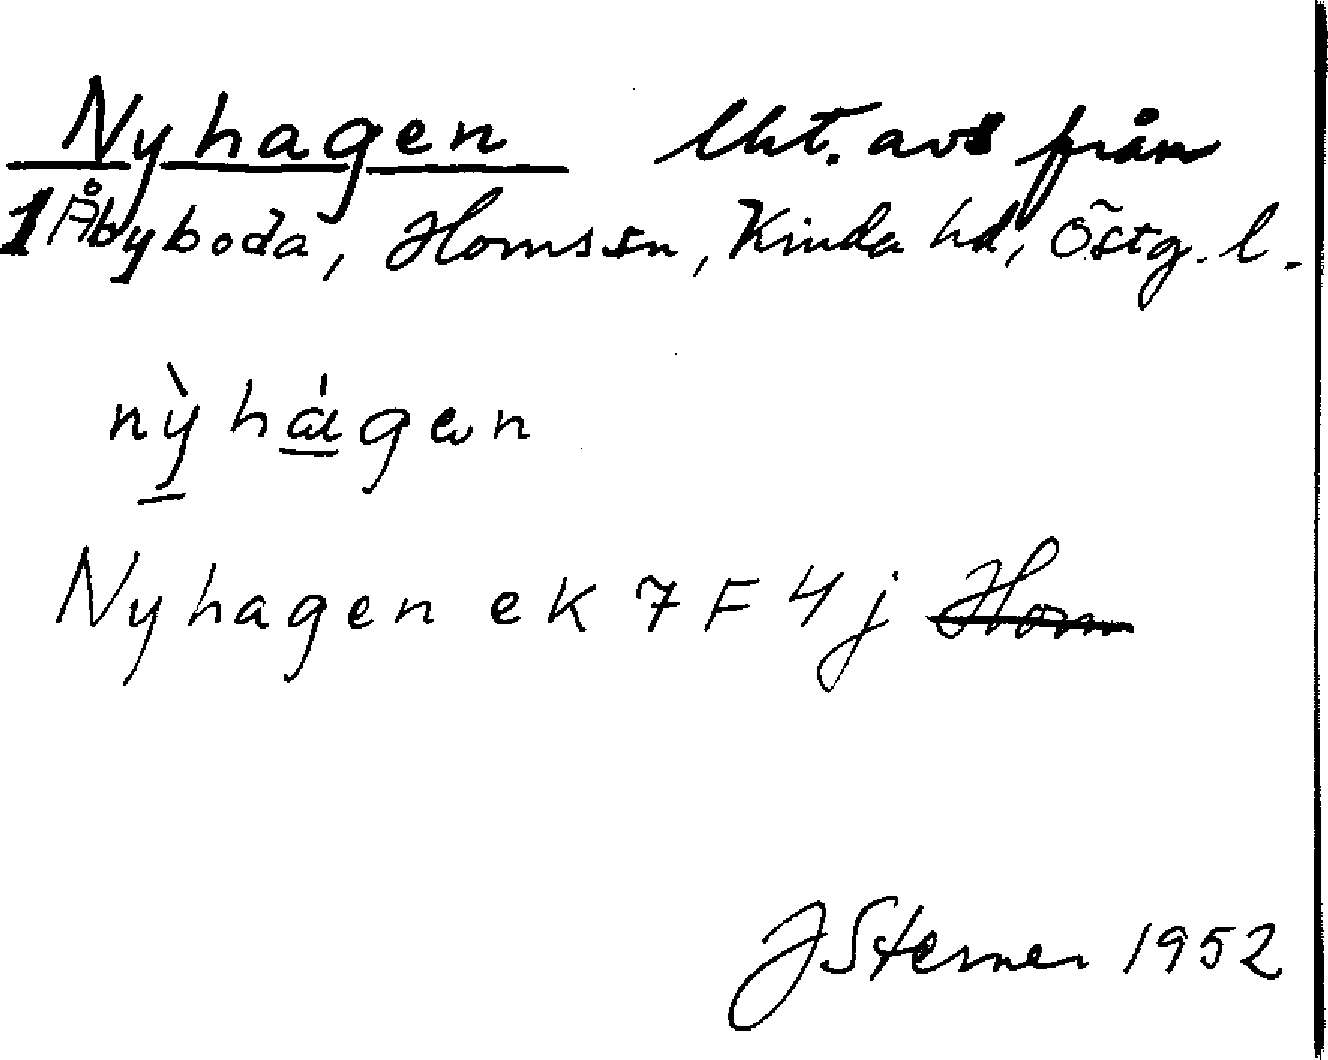 Nyhagen lht. avs från
1 Åbyboda, Homs sn, Kinda hd, Östg. l.
nỳ hágen
Nyhagen ek 7 F 4 j Hom
J Sterner 1952